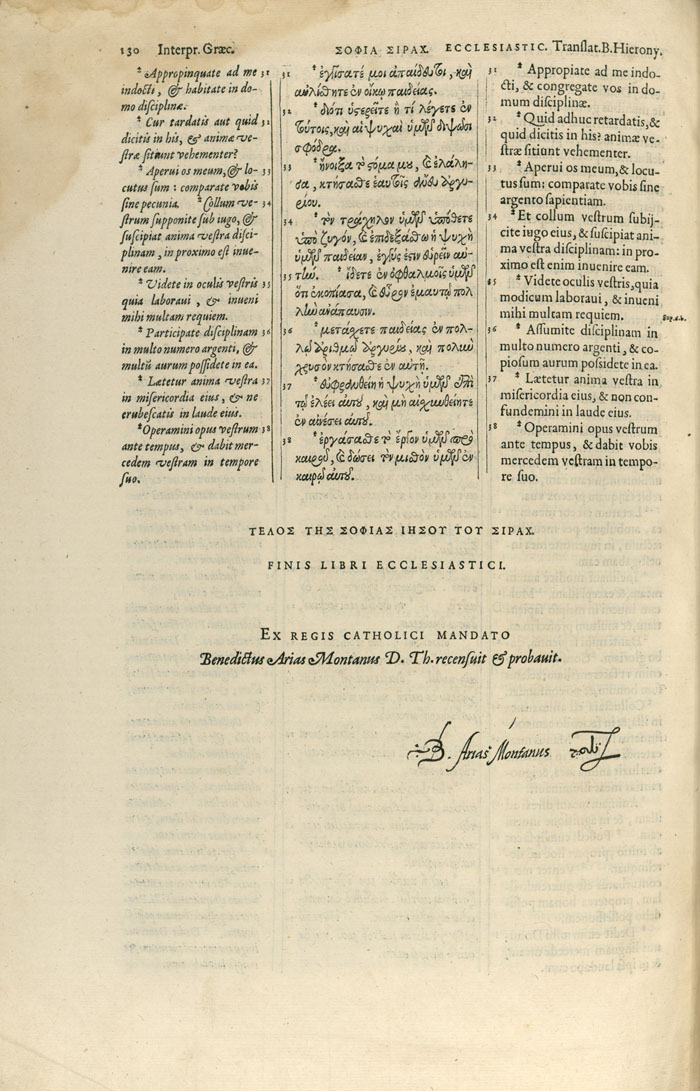 130 Interpr. Græc. ΣΟΦΙΑ ΣΙΡΑΧ. ECCLESIASTIC. Translat.B.Hierony.
* Appropinquate ad me 31
indocti, & habitate in do-
mo disciplinæ.
* Cur tardatis aut quid 32
dicitis in his, & animæ ve-
stræ sitiunt vehementer?
* Aperui os meum, & lo- 33
cutus sum : comparate vobis
sine pecunia. * Collum ve- 34
strum supponite sub iugo, &
suscipiat anima vestra disci-
plinam, in proximo est inue-
nire eam.
* Videte in oculis vestris 35
quia laboraui, & inueni
mihi multam requiem.
* Participate disciplinam 36
in multo numero argenti, &
multũ aurum possidete in ea.
* Lætetur anima vestra 37
in misericordia eius, & ne
erubescatis in laude eius.
* Operamini opus vestrum 38
ante tempus, & dabit mer-
cedem vestram in tempore
suo.
31 * ἐγγίσατέ μοι ἀπαίδευτοι, καὶ
αὐλίσθητε ἐν οἴκῳ παιδείας.
32 * διότι ὑστερεῖτε ἢ τί λέγετε ἐν
τούτοις, καὶ αἱ ψυχαὶ ὑμῶν διψῶσι
σφόδρα.
33 * ἤνοιξα τὸ στόμα μου, καὶ ἐλάλη-
σα, κτήσασθε ἑαυτοῖς ἄνευ ἀργυ-
ρίου.
34 * τὸν τράχηλον ὑμῶν ὑπόθετε
ὑπὸ ζυγόν, καὶ ἐπιδεξάσθω ἡ ψυχὴ
ὑμῶν παιδείαν, ἐγγύς ἐστιν εὑρεῖν αὐ-
35 τήν. * ἴδετε ἐν ὀφθαλμοῖς ὑμῶν
ὅτι ἐκοπίασα, καὶ εὗρον ἐμαυτῷ πολ
λὴν ἀνάπαυσιν.
36 * μετάσχετε παιδείας ἐν πολ-
λῷ ἀριθμῷ ἀργυρίου, καὶ πολὺν
χρυσὸν κτήσασθε ἐν αὐτῇ.
37 * εὐφρανθείη ἡ ψυχὴ ὑμῶν ἐπὶ
τῷ ἐλέει αὐτοῦ, καὶ μὴ αἰσχυνθείητε
ἐν αἰνέσει αὐτοῦ.
38 * ἐργάσασθε τὸ ἔργον ὑμῶν πρὸ
καιροῦ, καὶ δώσει τὸν μισθὸν ὑμῶν ἐν
καιρῷ αὐτοῦ.
31 * Appropiate ad me indo-
cti, & congregate vos in do-
mum disciplinæ.
32 * Quid adhuc retardatis, &
quid dicitis in his? animæ ve-
stræ sitiunt vehementer.
33 * Aperui os meum, & locu-
tus sum: comparate vobis sine
argento sapientiam.
34 * Et collum vestrum subij-
cite iugo eius, & suscipiat ani-
ma vestra disciplinam: in pro-
ximo est enim inuenire eam.
85 * Videte oculis vestris, quia
modicum laboraui, & inueni
mihi multam requiem.
36 * Assumite disciplinam in
multo numero argenti, & co-
piosum aurum possidete in ea.
37 * Lætetur anima vestra in
misericordia eius, & non con-
fundemini in laude eius.
38 * Operamini opus vestrum
ante tempus, & dabit vobis
mercedem vestram in tempo-
re suo.
ΤΕΛΟΣ ΤΗΣ ΣΟΦΙΑΣ ΙΗΣΟΥ ΤΟΥ ΣΙΡΑΧ.
FINIS LIBRI ECCLESIASTICI.
EX REGIS CATHOLICI MANDATO
Benedictus Arias Montanus D. Th. recensuit & probauit.
B. Arias Montanus